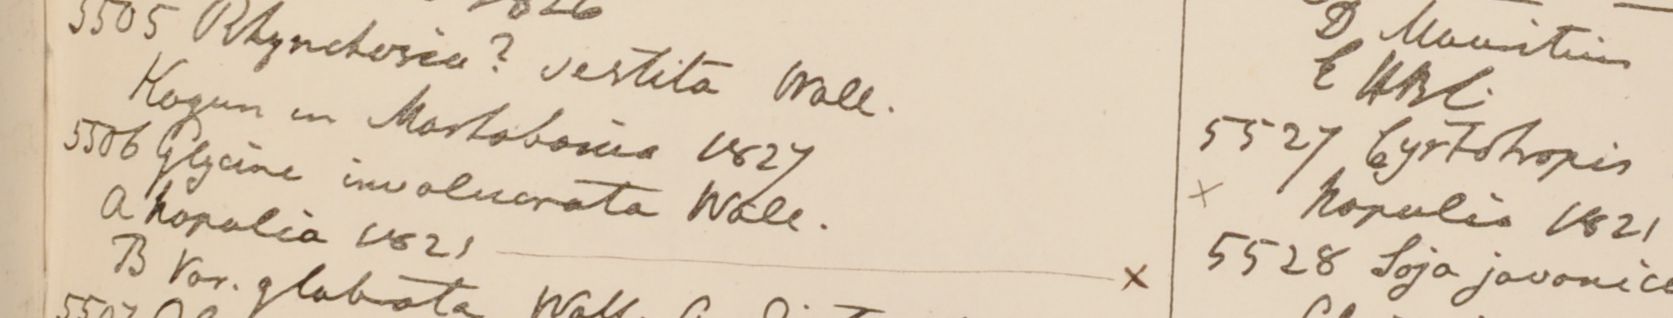 1826
5505 Rhynchosia? vestita Wall.
Kogun in Martabania 1827
5506 Glycine involucrata Wall.
A Napalia 1821 x
B Var. glabrata Wall.
5507
D Mauritius
E HBC.
5527 Cyrtotropis
x Napalia 1821
5528 Soja javanica